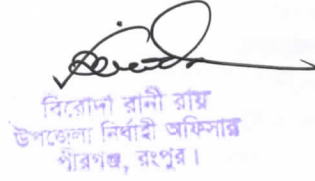 বিরোদা রানী রায়
উপজেলা নির্বাহী অফিসার
পীরগঞ্জ, রংপুর।